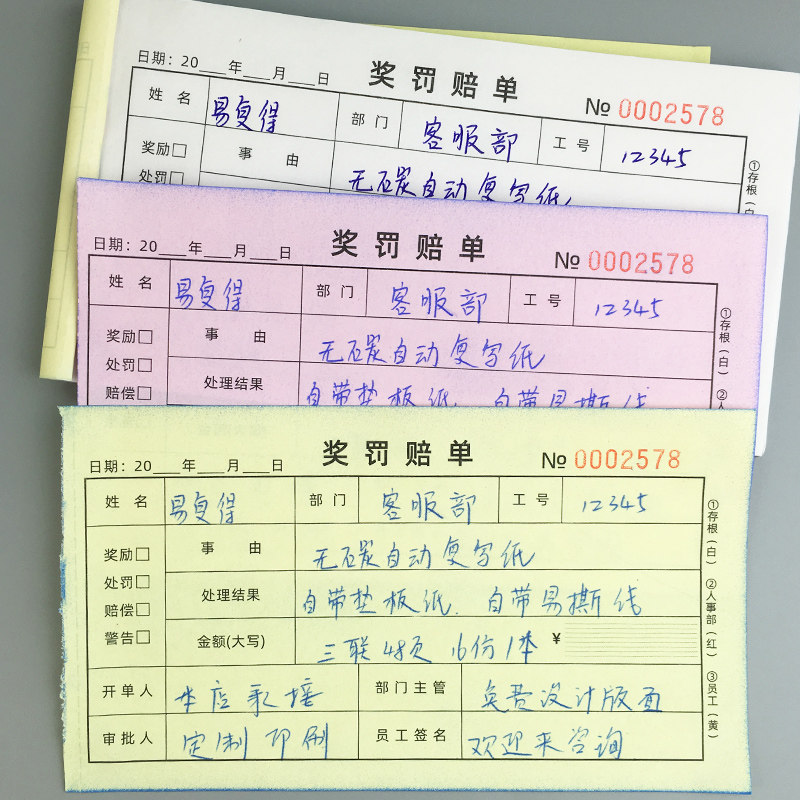 日期：20___年___月___日 奖罚赔单 № 0002578
姓 名 易复得 部 门 客服部 工 号 12345
奖励□ 事 由 无石炭自动复写纸
处罚□
①存根（白
日期：20___年___月___日 奖罚赔单 № 0002578
姓 名 易复得 部 门 客服部 工 号 12345
奖励□ 事 由 无石炭自动复写纸
处罚□ 处理结果 自带垫板纸 自带易撕线
赔偿□
①存根（白） ②人
日期：20___年___月___日 奖罚赔单 № 0002578
姓 名 易复得 部 门 客服部 工 号 12345
奖励□ 事 由 无石炭自动复写纸
处罚□ 处理结果 自带垫板纸. 自带易撕线
赔偿□
警告□ 金额(大写) 三联48页 16份1本 ¥
开单人 本店承接 部门主管 免费设计版面
审批人 定制印刷 员工签名 欢迎来咨询
①存根（白） ②人事部（红） ③员工（黄）